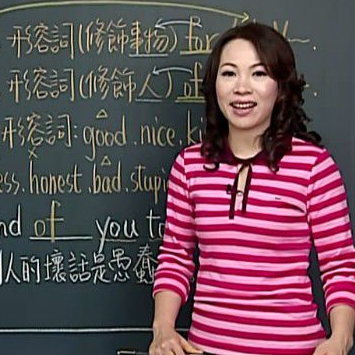 形容詞(修飾事物) for
形容詞(修飾人) of
形容詞: good. nice. ki
ess. honest. bad. stupi
nd of you to
人的壞話是愚蠢